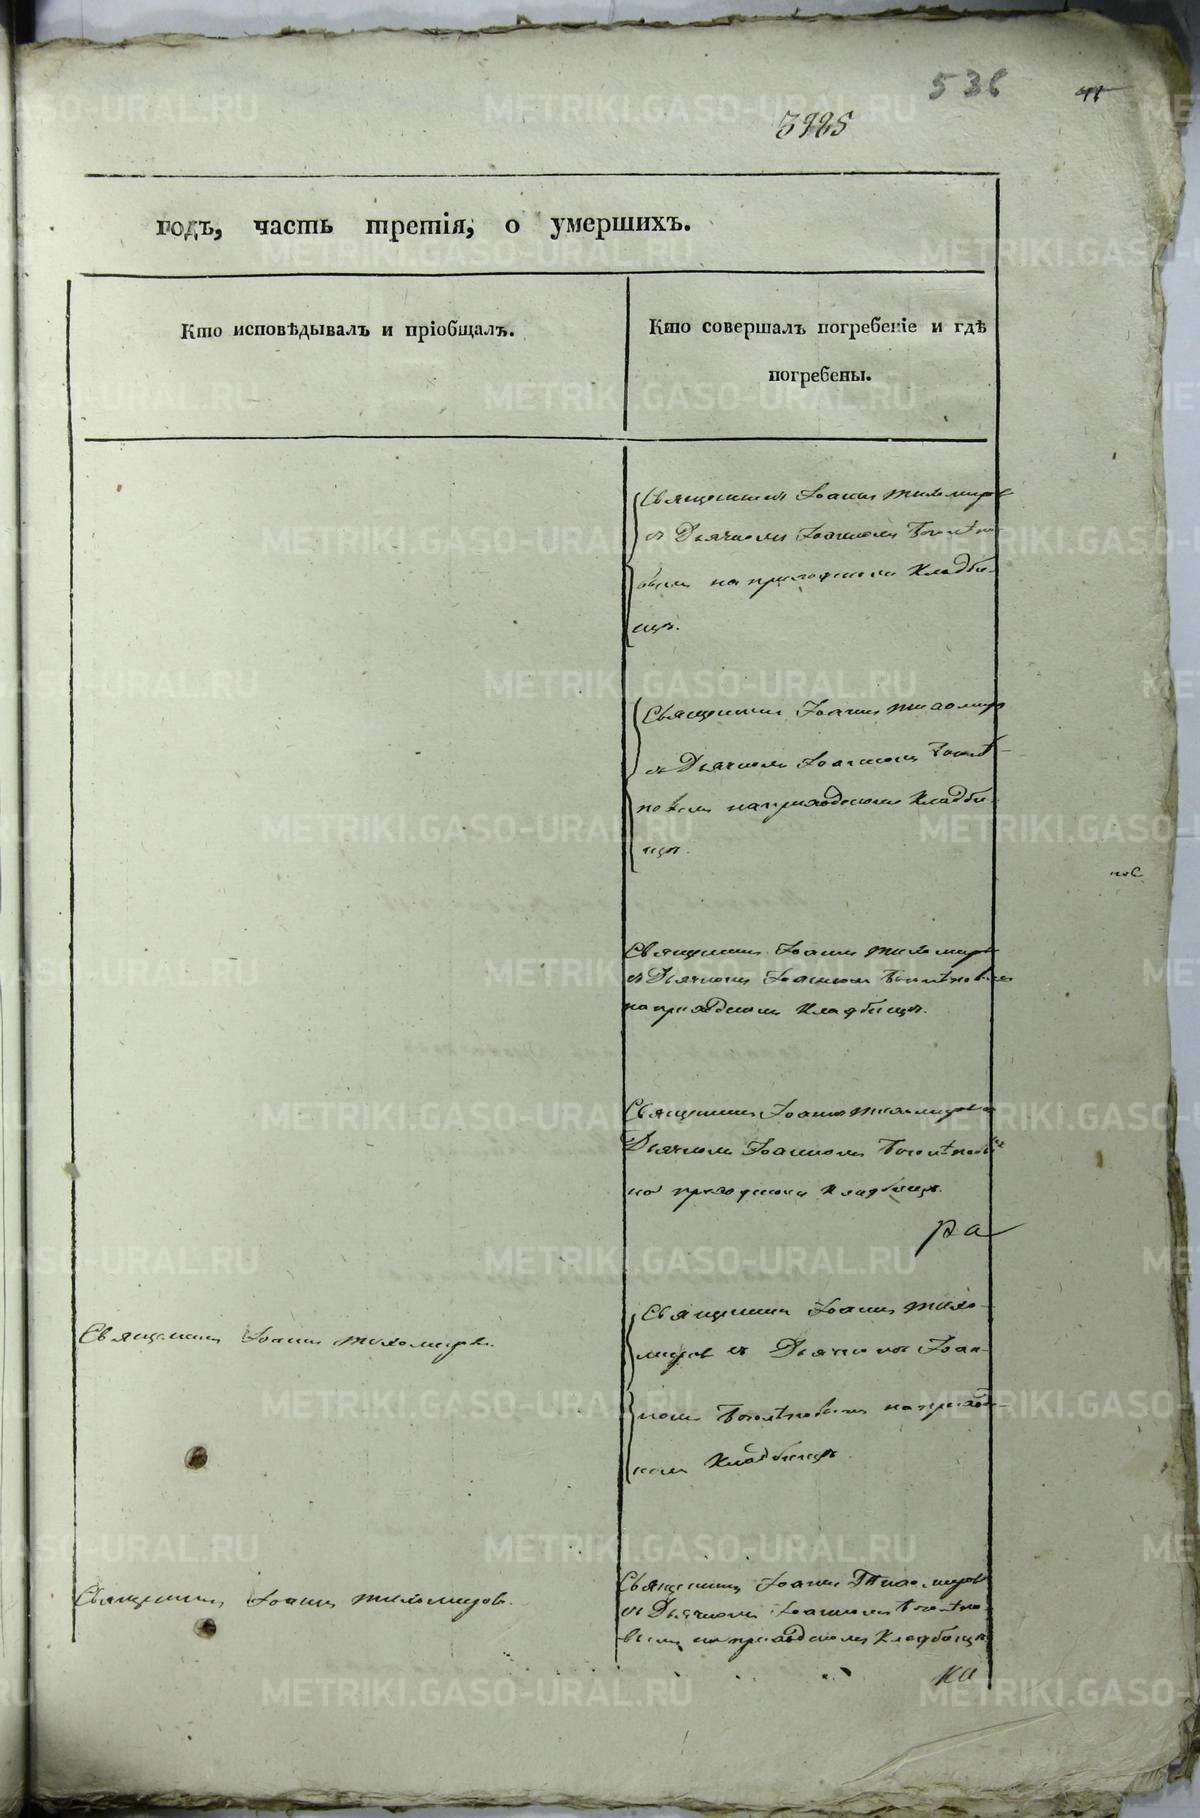 536
3225
годъ, часть третія, о умершихъ.
Кто исповѣдывалъ и пріобщалъ.
Кто совершалъ погребеніе и гдѣ
погребены.
Священникъ Іоаннъ Тихомиров
съ Дьячкомъ Іоанномъ Боголѣпо
вымъ на приходскомъ Кладби-
щѣ.
Священникъ Іоаннъ Тихомиръ
съ Дьячкомъ Іоанномъ Боголѣ-
повымъ на приходскомъ Кладби-
щѣ.
Священникъ Іоаннъ Тихомировъ
съ Дьячкомъ Іоанномъ Боголѣповымъ
на приходскомъ Кладбищѣ.
Священникъ Іоаннъ Тихомировъ с
Дьячкомъ Іоанномъ Боголѣповы
на приходскомъ Кладбищѣ.
ра
Священникъ Іоаннъ Тихомировъ.
Священникъ Іоаннъ Тихо-
мировъ съ Дьячкомъ Іоан-
номъ Боголѣповымъ на приход-
скомъ Кладбищѣ
Священникъ Іоаннъ Тихомировъ.
Священникъ Іоаннъ Тихомировъ
съ Дьячкомъ Іоанномъ Боголѣпо-
вымъ на приходскомъ Кладбищѣ
METRIKI.GASO-URAL.RU